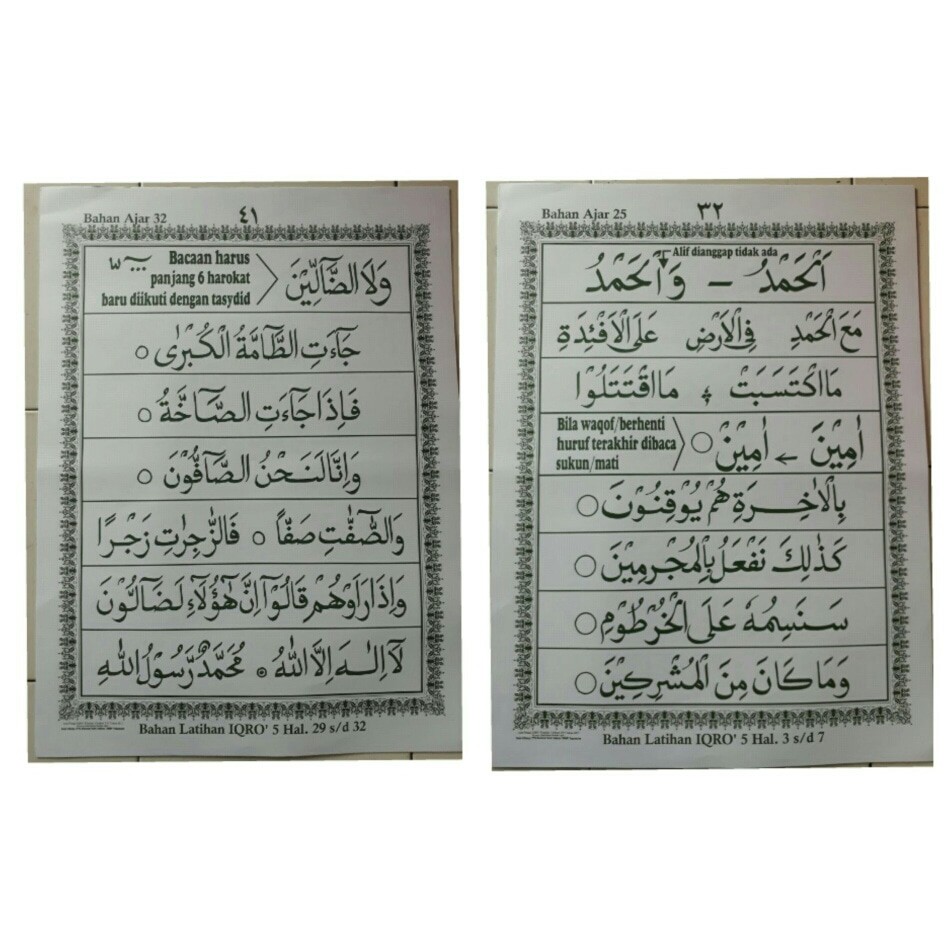 Bahan Ajar 32
٤١
وَلَا الضَّآلِّيْنَ
Bacaan harus
panjang 6 harokat
baru diikuti dengan tasydid
جَآءَتِ الطَّآمَّةُ الْكُبْرٰى ○
فَاِذَا جَآءَتِ الصَّآخَّةُ ○
وَاِنَّا لَنَحْنُ الصَّآفُّوْنَ ○
وَالصّٰٓفّٰتِ صَفًّا ○ فَالزّٰجِرٰتِ زَجْرًا
وَاِذَا رَاَوْهُمْ قَالُوْٓا اِنَّ هٰٓؤُلَآءِ لَضَآلُّوْنَ
لَآ اِلٰهَ اِلَّا اللّٰهُ ۞ مُحَمَّدٌ رَّسُوْلُ اللّٰهِ
Bahan Latihan IQRO' 5 Hal. 29 s/d 32
Bahan Ajar 25
٣٢
Alif dianggap tidak ada
اَلْحَمْدُ – وَالْحَمْدُ
مَعَ الْحَمْدِ فِى الْاَرْضِ عَلَى الْاَفْئِدَةِ
مَا اكْتَسَبَتْ ؞ مَا اقْتَتَلُوْا
اٰمِيْنَ ← اٰمِيْنْ ○
Bila waqof/berhenti
huruf terakhir dibaca
sukun/mati
بِالْاٰخِرَةِ هُمْ يُوْقِنُوْنَ ○
كَذٰلِكَ نَفْعَلُ بِالْمُجْرِمِيْنَ ○
سَنَسِمُهٗ عَلَى الْخُرْطُوْمِ ○
وَمَا كَانَ مِنَ الْمُشْرِكِيْنَ ○
Bahan Latihan IQRO' 5 Hal. 3 s/d 7